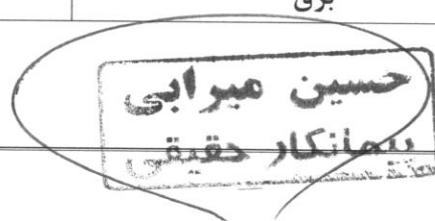 برق
حسین میرابی
پیمانکار حقیقی